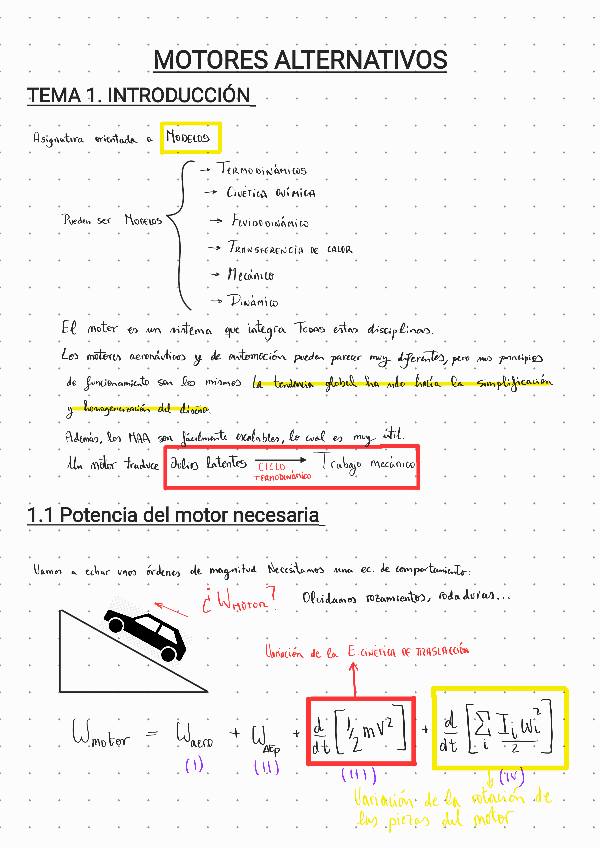 MOTORES ALTERNATIVOS
TEMA 1. INTRODUCCIÓN
Asignatura orientada a MODELOS
Pueden ser MODELOS
→ TERMODINÁMICOS
→ CINÉTICA QUÍMICA
→ FLUIDODINÁMICO
→ TRANSFERENCIA DE CALOR
→ MECÁNICO
→ DINÁMICO
El motor es un sistema que integra TODAS estas disciplinas.
Los motores aeronáuticos y de automoción pueden parecer muy diferentes, pero sus principios
de funcionamiento son los mismos la tendencia global ha sido hacia la simplificación
y homogenización del diseño.
Además, los MAA son fácilmente escalables, lo cual es muy útil.
Un motor traduce Julios latentes → Trabajo mecánico
CICLO
TERMODINÁMICO
1.1 Potencia del motor necesaria
Vamos a echar unos órdenes de magnitud Necesitamos una ec. de comportamiento:
¿ẆMOTOR? Olvidamos rozamientos, rodaduras...
Variación de la E. CINÉTICA DE TRASLACCIÓN
Ẇmotor = Ẇaero + ẆΔEp + d/dt [1/2 mV²] + d/dt [∑i Ii ωi²/2]
(I) (II) (III) (IV)
Variación de la rotación de
las piezas del motor